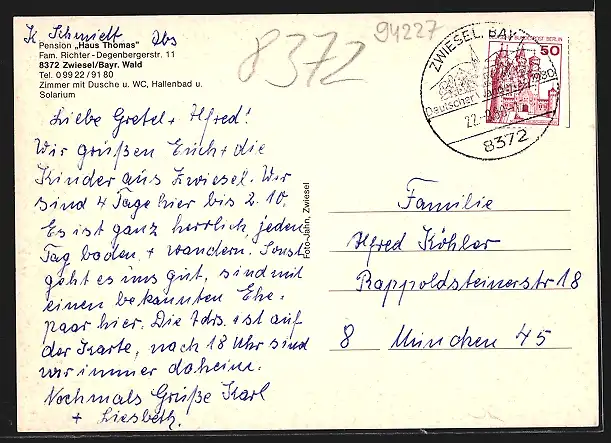 K. Schmidt Abs
Pension „Haus Thomas"
Fam. Richter - Degenbergerstr. 11
8372 Zwiesel/Bayr. Wald
Tel. 0 99 22 / 91 80
Zimmer mit Dusche u. WC, Hallenbad u.
Solarium
8372
94227
ZWIESEL, BAY
Deutscher Wandertag 1980
22.-9.
8372
DEUTSCHE BUNDESPOST BERLIN
50
Liebe Gretel + Alfred!
Wir grüßen Euch + die
Kinder aus Zwiesel. Wir
sind 4 Tage hier bis 2.10.
Es ist ganz herrlich, jeden
Tag baden + wandern. Sonst
geht es uns gut, sind mit
einen bekannten Ehe-
paar hier. Die Adrs. ist auf
der Karte, nach 18 Uhr sind
wir immer daheim.
Nochmals Grüße Karl
+ Liesbeth.
Foto-Jahn, Zwiesel
Familie
Alfred Köhler
Rappoldsteinerstr 18
8 München 45